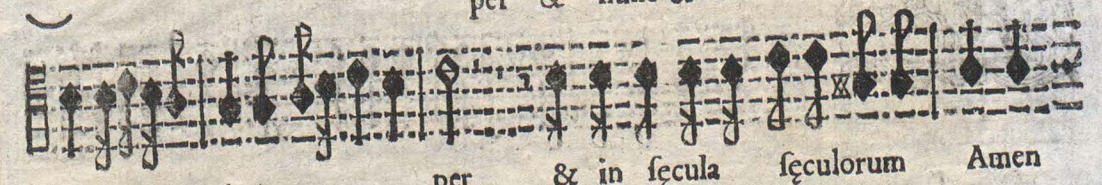 per &
per & in ſęcula ſęculorum Amen